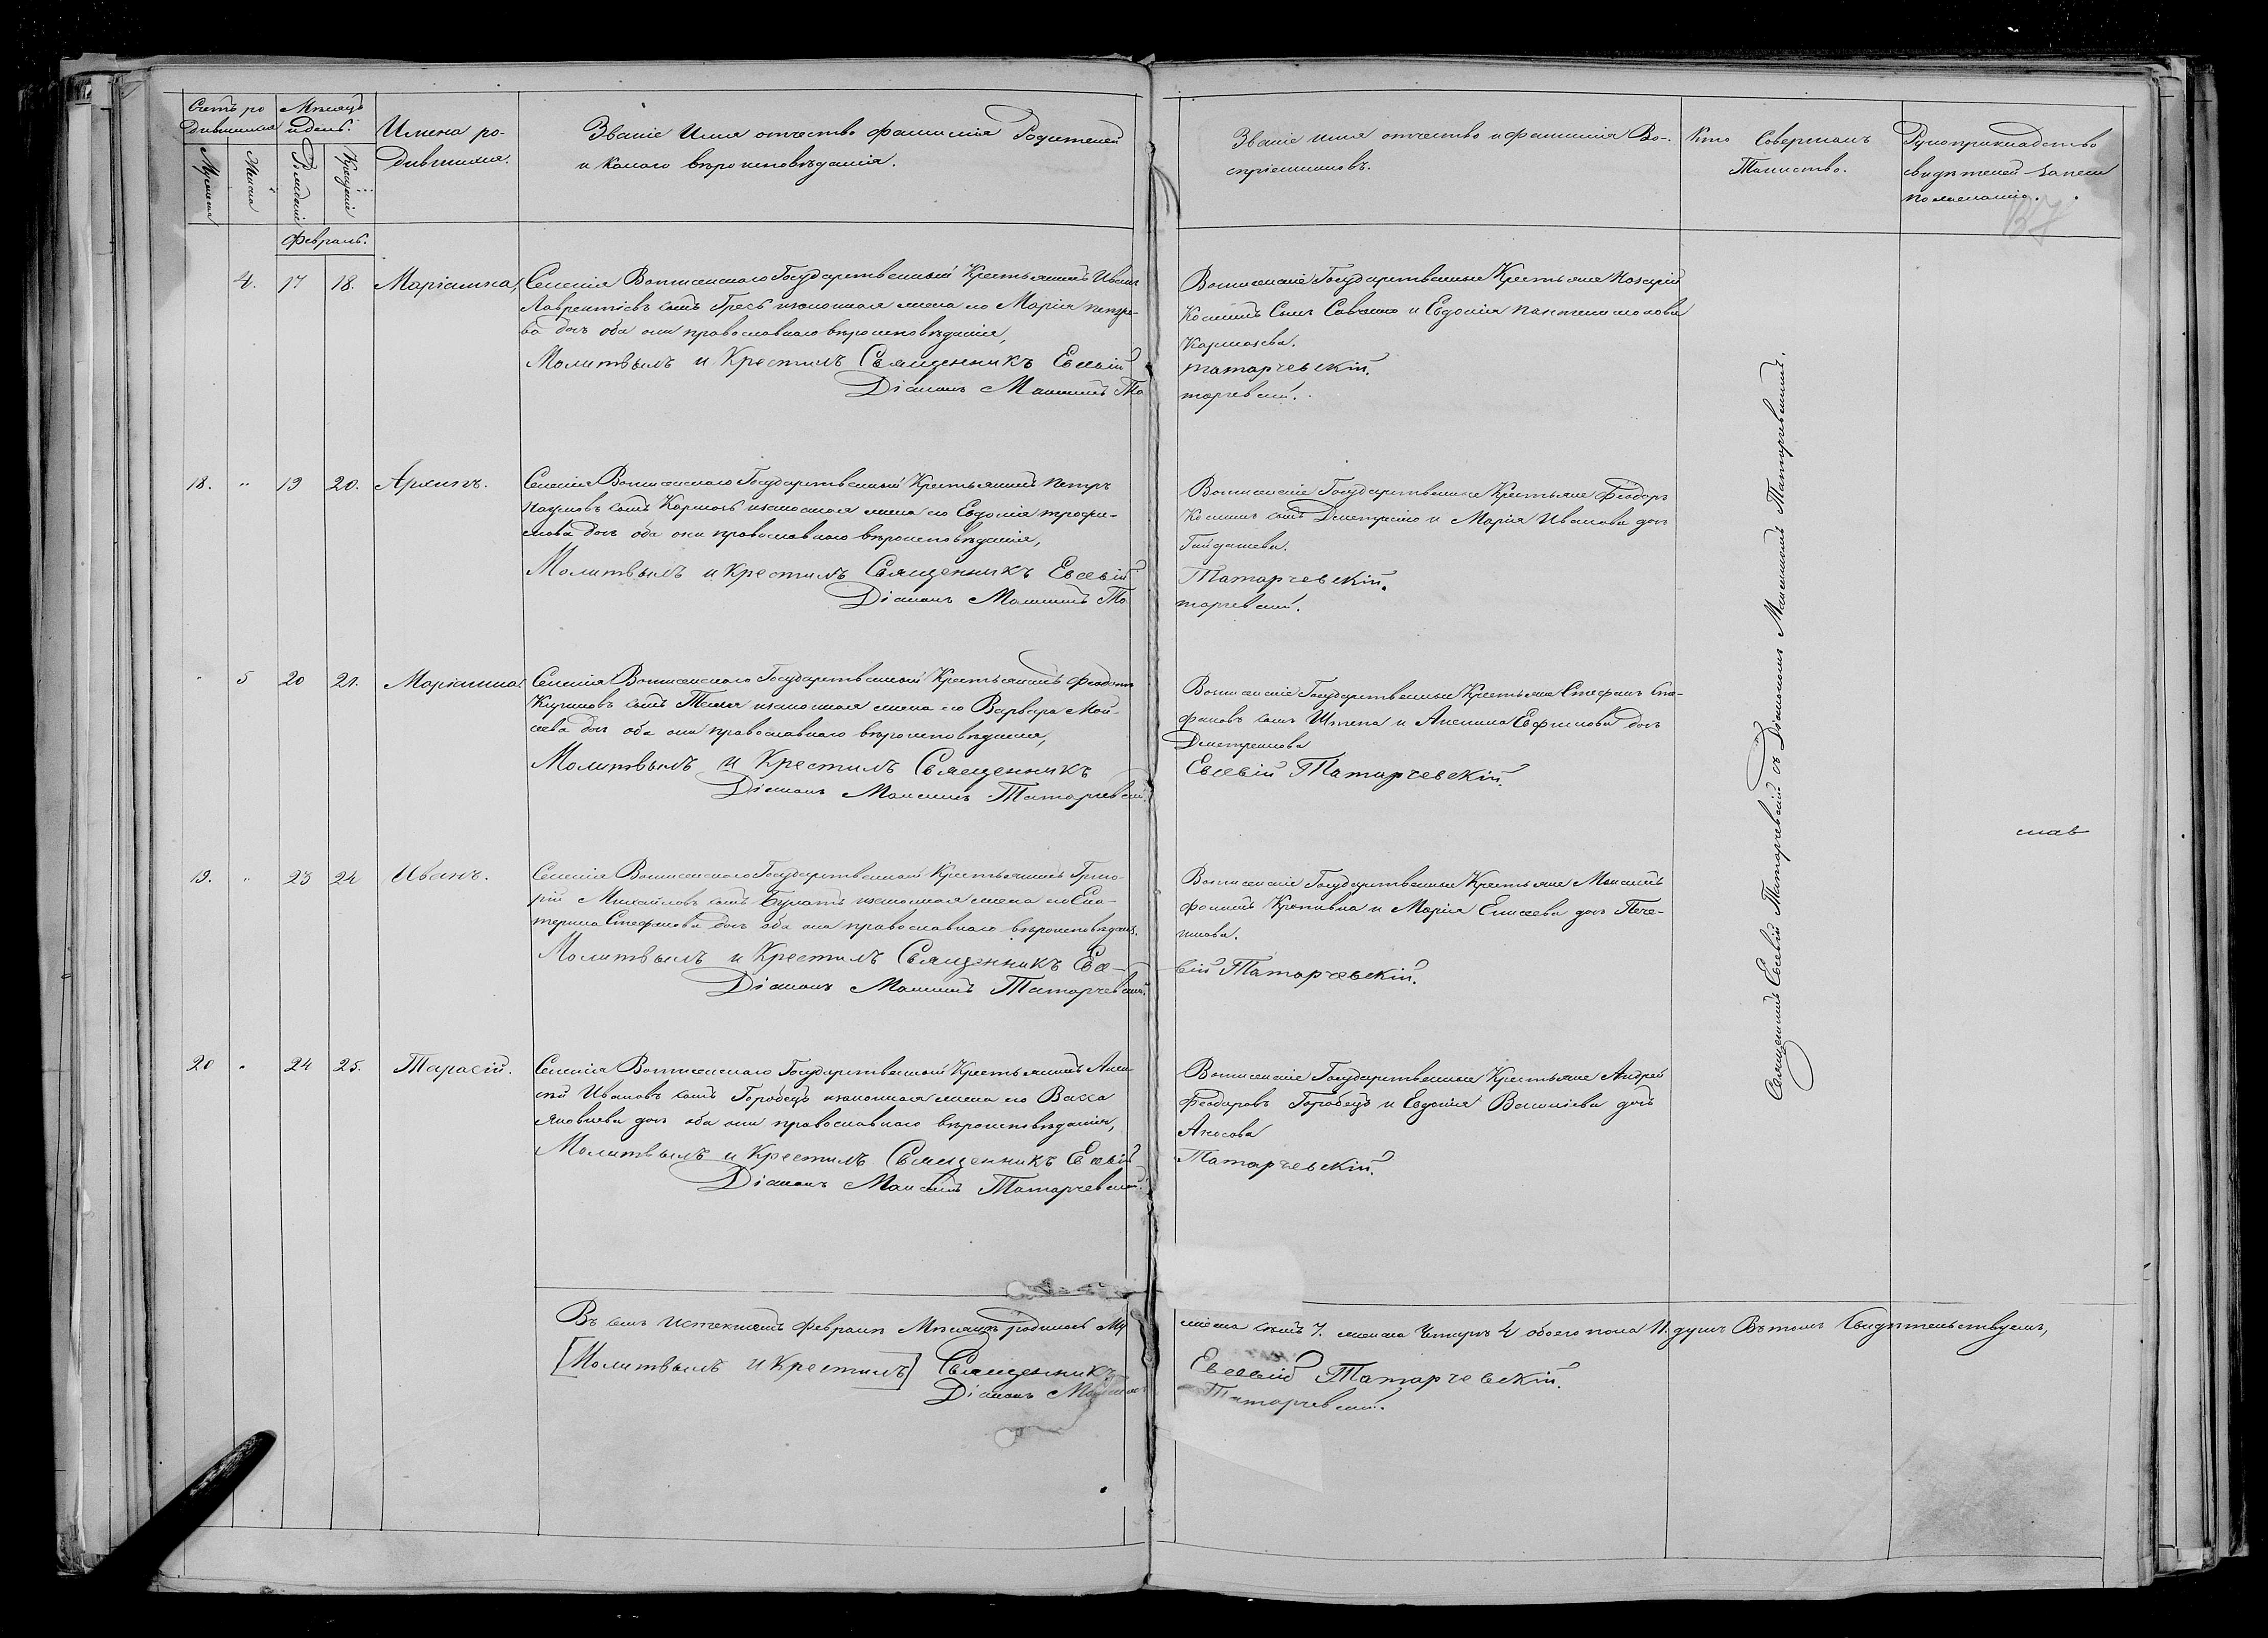 Счетъ ро
дившихся
Мѣсяцъ
и день.
Имена ро-
дившихся.
Званіе Имя отчество фамилія Родителей
и какого вѣроисповѣданія.
Мужеска
Женска
Рожденіе
Крещеніе
Февраль.
Званіе имя отчество и фамилія Во-
спріемниковъ.
Кто Совершалъ
Таинство.
Рукоприкладство
свидѣтелей записи
по желанію.
4. 17 18. Маріанна,
Селенія Государственный Крестьянинъ Иванъ
Лаврентіевъ сынъ Гресь законная жена его Марія петро-
ва дочь оба они православнаго вѣроисповѣданія,
Молитвылъ и Крестилъ Священникъ Евсевій
Діаконъ Максимъ Та
Государственные Крестьяне
Косминъ Сынъ Савченко и Евдокія пантелимонова
татарчевскій.
тарчевскій.
18. " 19 20. Архипъ.
Селенія Государственный Крестьянинъ петръ
Наумовъ сынъ законная жена его Евдокія трофи-
мова дочь оба они православнаго вѣроисповѣданія,
Молитвылъ и Крестилъ Священникъ Евсевій
Діаконъ Максимъ Та
Государственные Крестьяне Феодоръ
Косминъ сынъ Дмитренко и Марія Иванова дочь
Гайдашева.
Татарчевскій.
тарчевскій.
" 5 20 21. Маріанна.
Селенія Государственный Крестьянинъ Феодотъ
сынъ законная жена его Варвара Мой-
сеева дочь оба они православнаго вѣроисповѣданія,
Молитвылъ и Крестилъ Священникъ
Діаконъ Максимъ Татарчевскій.
Государственные Крестьяне Стефанъ Сте-
фановъ сынъ и Евфимова дочь
Дмитренкова
Евсевій Татарчевскій.
19. " 23 24 Иванъ.
Селенія Государственный Крестьянинъ Григо-
рій Михайловъ сынъ Булатъ законная жена его Ека-
терина Стефанова дочь оба они православнаго вѣроисповѣдані.
Молитвылъ и Крестилъ Священникъ Евсе-
Діаконъ Максимъ Татарчевскій.
Государственные Крестьяне Максимъ
Кропивка и Марія Елисеева дочь Пече-
вій Татарчевскій.
20 " 24 25. Тарасій.
Селенія Государственный Крестьянинъ Алек-
сѣй Ивановъ сынъ Горобецъ законная жена его Васса
Яковлева дочь оба они православнаго вѣроисповѣданія,
Молитвылъ и Крестилъ Священникъ Евсевій
Діаконъ Максимъ Татарчевскій.
Государственные Крестьяне Андрей
Феодоровъ Горобецъ и Евдокія дочь
Татарчевскій.
Священникъ Евсевій Татарчевскій съ Діакономъ Максимомъ Татарчевскимъ.
Въ семъ истекшемъ Февралѣ Мѣсяцѣ родилось Му
жеска семь 7. женска четыре 4 обоего пола 11. душъ Въ томъ Свидѣтельствуемъ,
[Молитвылъ и Крестилъ] Священникъ
Евсевій Татарчевскій.
Діаконъ
Татарчевскій.